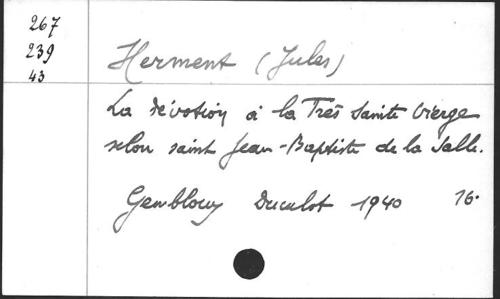 267
239
43
Herment (Jules)
La dévotion à la Très Sainte Vierge
selon saint Jean-Baptiste de la Salle.
Gembloux Duculot 1940 16°